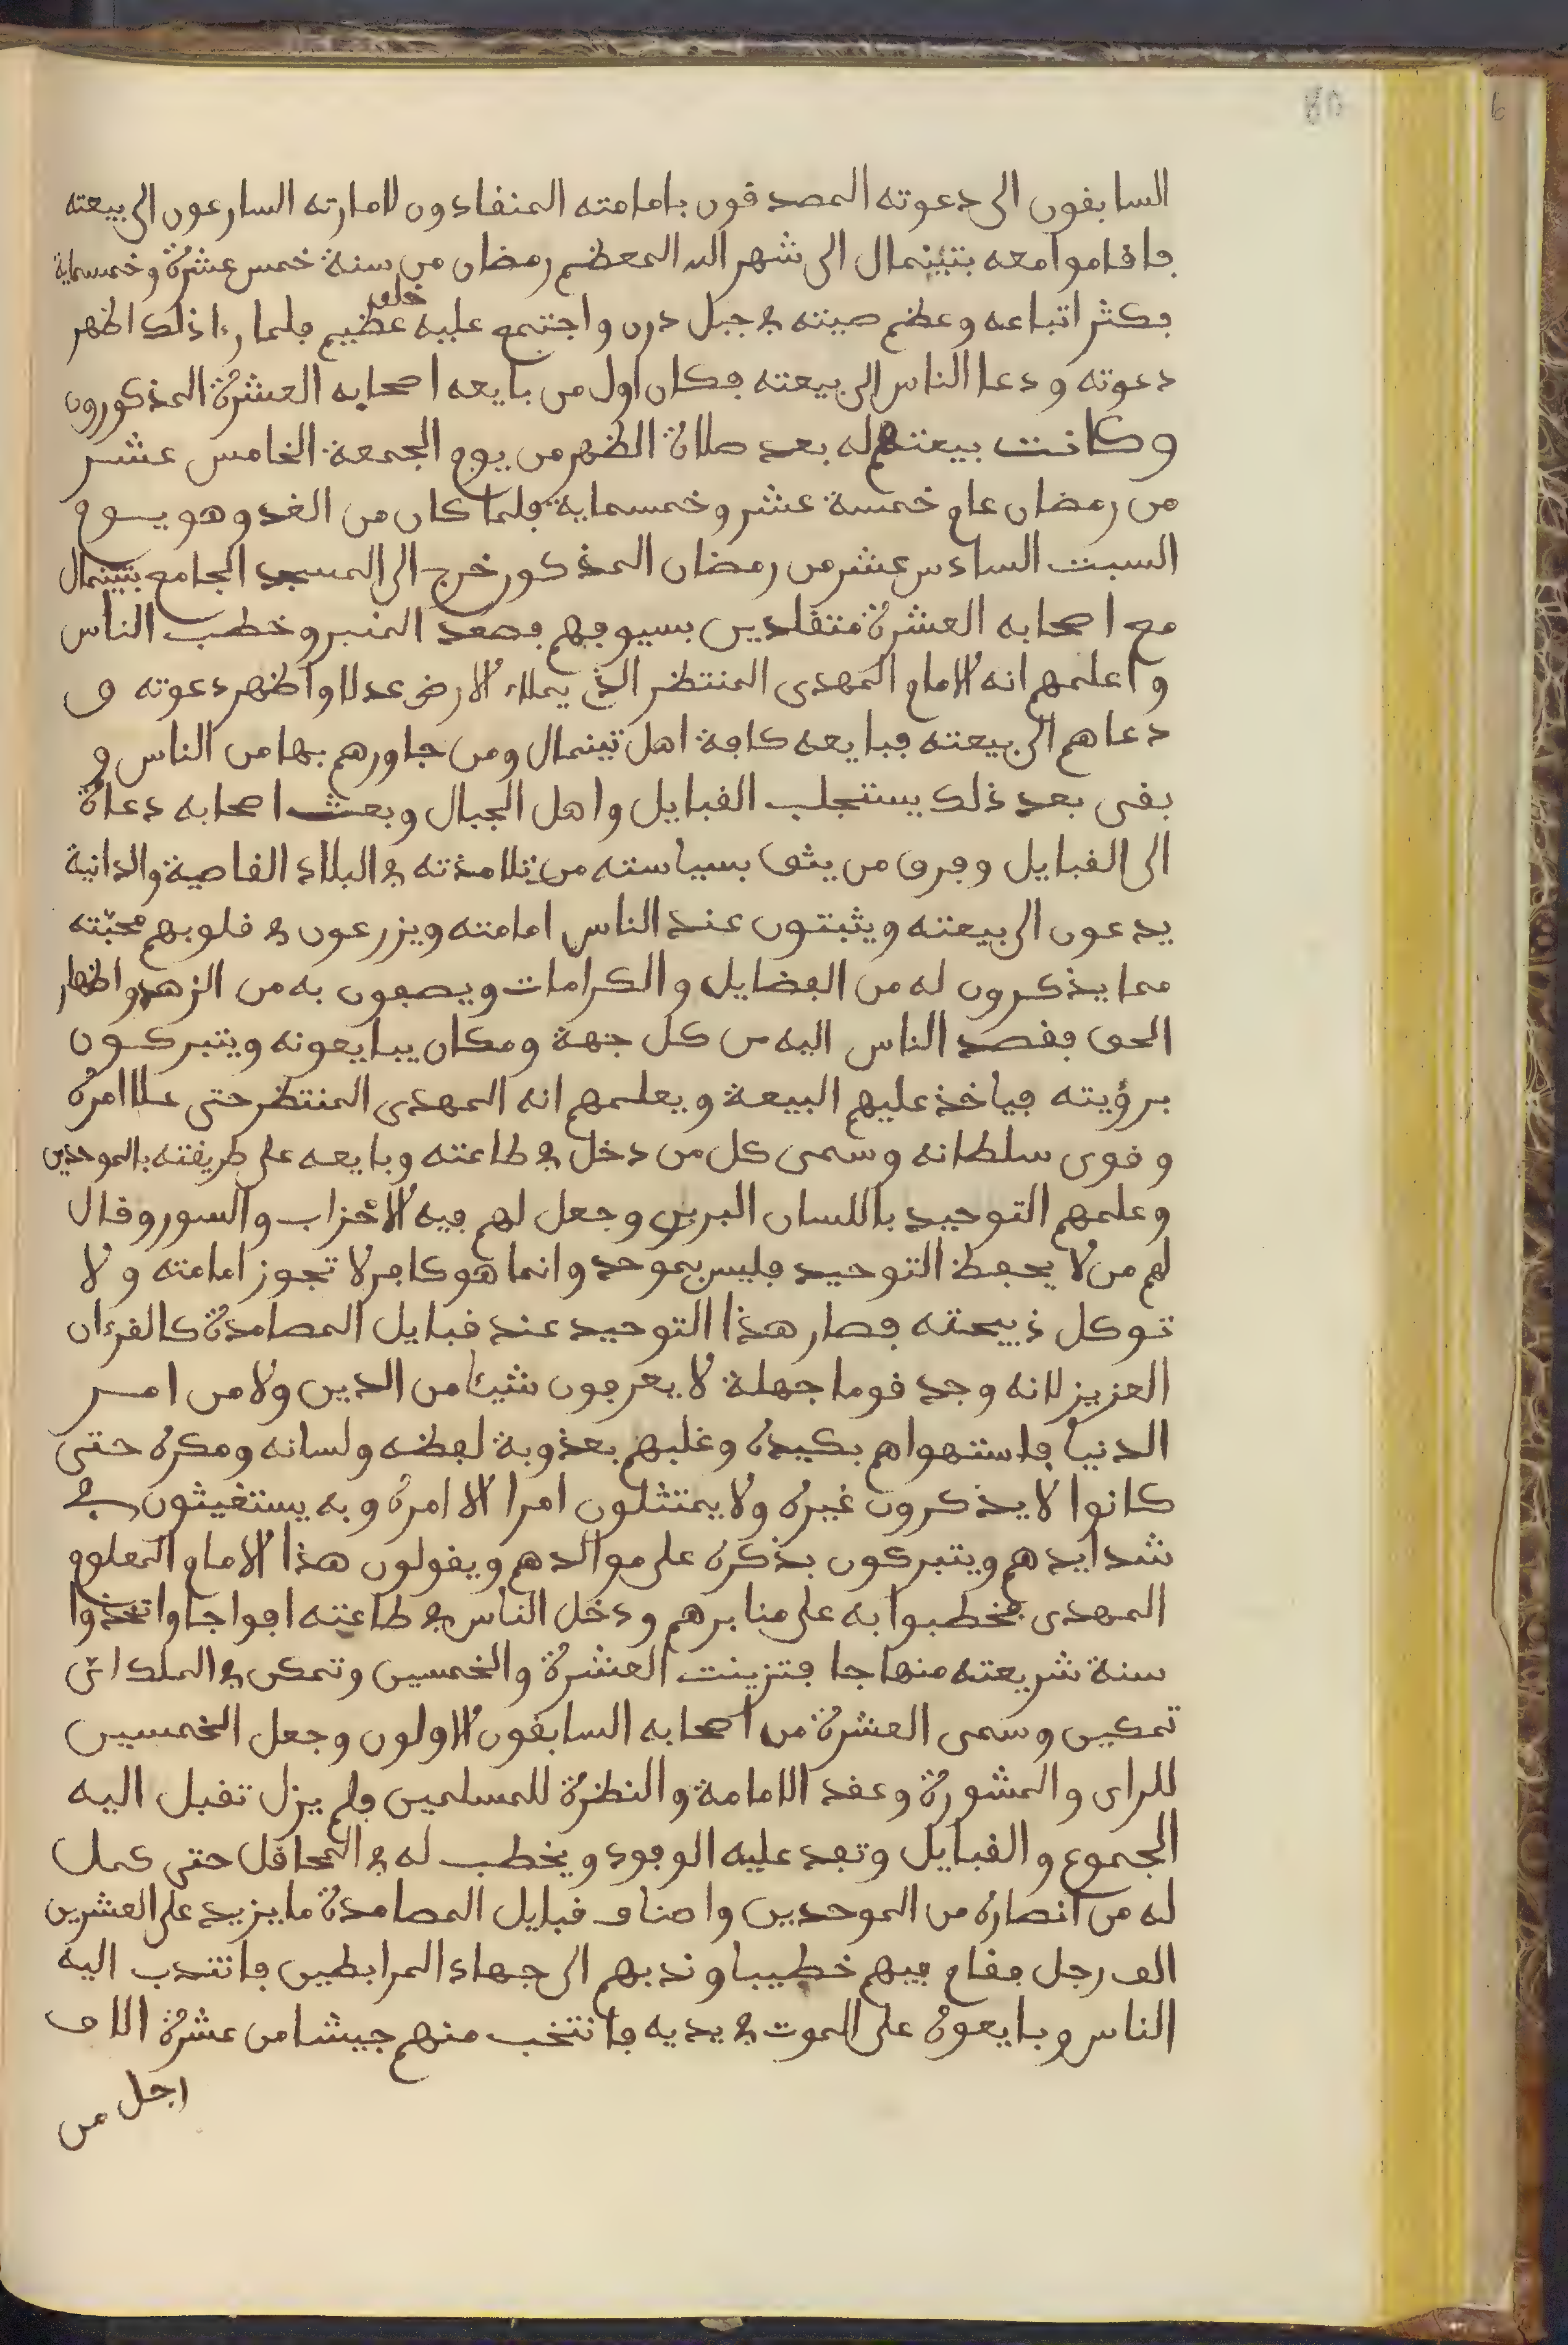 السابقون الى دعوته المصدقون بامامته المنقادون لامارته السارعون الى بيعته
فاقاموا معه بتينمال الى شهر الله المعظم رمضان من سنة خمس عشرة وخمسماية
فكثر اتباعه وعظم صيته في جبل درن واجتمع عليه خلق عظيم فلما رءا ذلك اظهر
دعوته ودعا الناس الى بيعته فكان اول من بايعه اصحابه العشرة المذكورون
وكانت بيعتهم له بعد صلاة الظهر من يوم الجمعة الخامس عشر
من رمضان عام خمسة عشر وخمسماية فلما كان من الغد وهو يوم
السبت السادس عشر من رمضان المذكور خرج الى المسجد الجامع بتينمال
مع اصحابه العشرة متقلدين بسيوفهم فصعد المنبر وخطب الناس
واعلمهم انه الامام المهدى المنتظر الذى يملاء الارض عدلا واظهر دعوته و
دعاهم الى بيعته فبايعه كافة اهل تينمال ومن جاورهم بها من الناس و
بقى بعد ذلك يستجلب القبايل واهل الجبال وبعث اصحابه دعاة
الى القبايل وفرق من يثق بسياسته من تلامذته في البلاد القاصية والدانية
يدعون الى بيعته ويثبتون عند الناس امامته ويزرعون في قلوبهم محبّته
مما يذكرون له من الفضايل والكرامات ويصفون به من الزهد واظهار
الحق فقصد الناس اليه من كل جهة ومكان يبايعونه ويتبركون
برؤيته فياخذ عليهم البيعة ويعلمهم انه المهدى المنتظر حتى علا امره
وقوى سلطانه وسمى كل من دخل في طاعته وبايعه على طريقته بالموحدين
وعلمهم التوحيد باللسان البربرى وجعل لهم فيه الاحزاب والسور وقال
لهم من لا يحفظ التوحيد فليس بموحد وانما هو كافر لا تجوز امامته ولا
توكل ذبيحته فصار هذا التوحيد عند قبايل المصامدة كالقرءان
العزيز لانه وجد قوما جهلة لا يعرفون شيئا من الدين ولا من امر
الدنيا فاستهواهم بكيده وغلبهم بعذوبة لفظه ولسانه ومكره حتى
كانوا لا يذكرون غيره ولا يمتثلون امرا الا امره وبه يستغيثون في
شدايدهم ويتبركون بذكره على موائدهم ويقولون هذا الامام المعلوم
المهدى فخطبوا به على منابرهم ودخل الناس في طاعته افواجا واتخذوا
سنة شريعته منهاجا فتزينت العشرة والخمسين وتمكن في الملك اىّ
تمكين وسمى العشرة من اصحابه السابقون الاولون وجعل الخمسين
للراى والمشورة وعقد الامامة والنظرة للمسلمين ولم يزل تقبل اليه
الجموع والقبايل وتفد عليه الوفود ويخطب له في المحافل حتى كمل
له من انصاره من الموحدين واصناف قبايل المصامدة ما يزيد على العشرين
الف رجل فقام فيهم خطيبا وندبهم الى جهاد المرابطين فانتدب اليه
الناس وبايعوه على الموت في يديه فانتخب منهم جيشا من عشرة الاف
رجل من